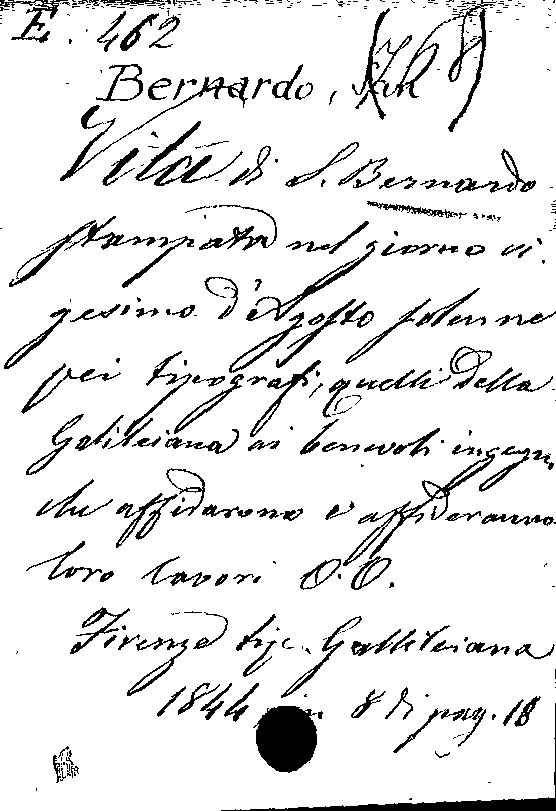 E. 462 (768)
Bernardo, San
Vita di S. Bernardo
stampata nel giorno vi-
gesimo d'Agosto solenne
pei tipografi, quelli della
Galileiana ai benevoli ingegni
che affidarono e affideranno
loro lavori O. O.
Firenze tip. Galileiana
1844 in 8 di pag. 18